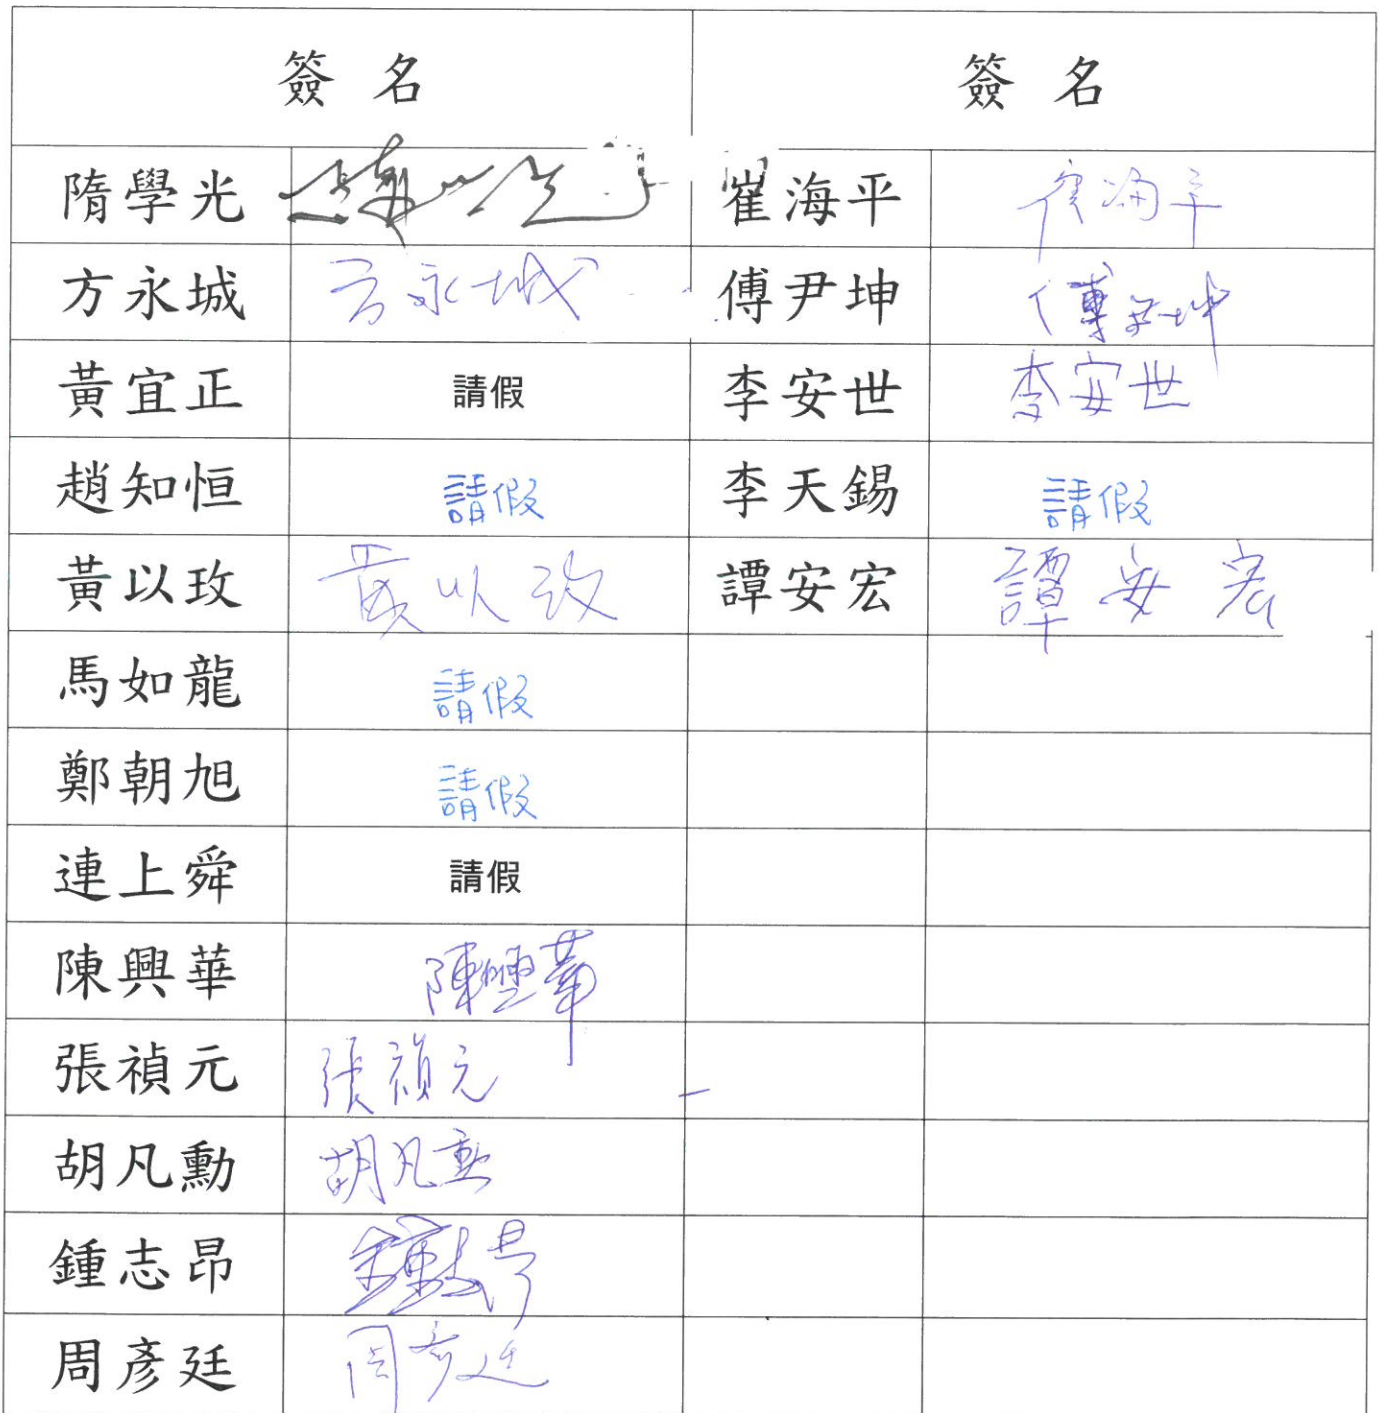 簽 名 簽 名
隋學光 崔海平 崔海平
方永城 方永城 傅尹坤 傅尹坤
黃宜正 請假 李安世 李安世
趙知恒 請假 李天錫 請假
黃以玫 黃以玫 譚安宏 譚安宏
馬如龍 請假
鄭朝旭 請假
連上舜 請假
陳興華 陳興華
張禎元 張禎元
胡凡勳 胡凡勳
鍾志昂 鍾志昂
周彥廷 周彥廷